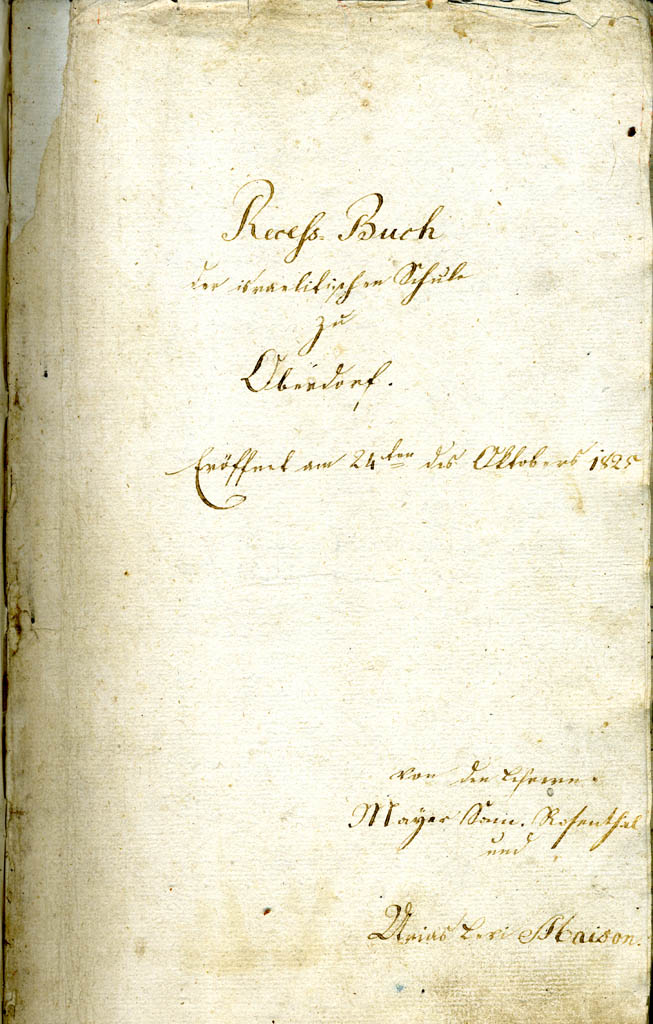 Recess Buch
der israelitischen Schule
zu
Oberdorf.
Eröffnet am 24ten des Oktobers 1825
von den Lehrern
Mayer Sam. Rosenthal
und
Urias Levi Maison.